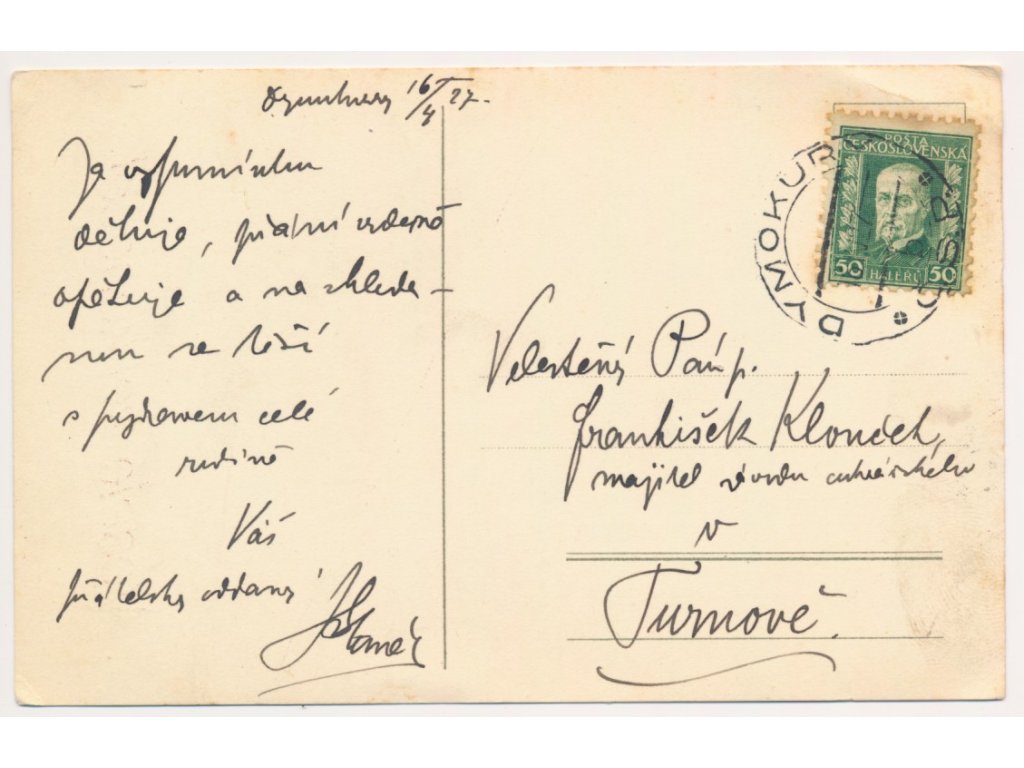 Dymokury 16/4 27.
Za vzpomínku
děkuje, přání srdečně
opětuje a na shleda-
nou se těší
s pozdravem celé
rodině
Váš
přátelsky oddaný
POŠTA
ČESKOSLOVENSKÁ
50 HALÉŘŮ 50
DYMOKURY
Č.S.P.
Velectěný Pán p.
František Klouček,
majitel závodu cukrářského
v
Turnově.